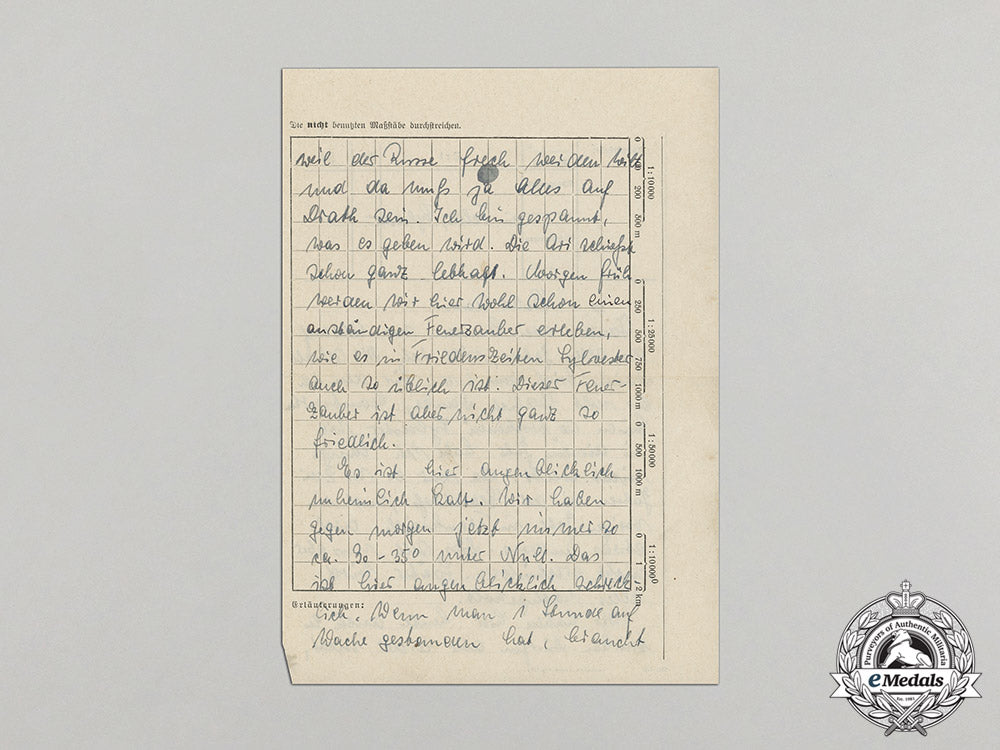 Die nicht benutzten Maßstäbe durchstreichen.
weil der Russe frech werden will
und da muß ja alles auf
Drath sein. Ich bin gespannt,
was es geben wird. Die Ari schießt
schon ganz lebhaft. Morgen früh
werden wir hier wohl schon einen
anständigen Feuerzauber erleben,
wie es in Friedenszeiten Sylvester
auch so üblich ist. Dieser Feuer-
zauber ist aber nicht ganz so
friedlich.
Es ist hier augenblicklich
unheimlich kalt. Wir haben
gegen morgen jetzt immer so
ca. 30 - 35° unter Null. Das
ist hier augenblicklich schreck
lich. Wenn man 1 Stunde auf
Wache gestanden hat, braucht
Erläuterungen:
0 100 200 500 m
1:10000
0 250 500 750 1000 m
1:25000
0 500 1000 m
1:50000
0 1 2 km
1:100000
Purveyors of Authentic Militaria
eMedals
Est. 1981